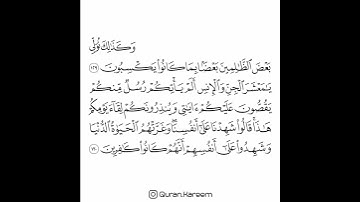 وَكَذَٰلِكَ نُوَلِّي
بَعْضَ ٱلظَّٰلِمِينَ بَعْضًۢا بِمَا كَانُوا۟ يَكْسِبُونَ ١٢٩
يَٰمَعْشَرَ ٱلْجِنِّ وَٱلْإِنسِ أَلَمْ يَأْتِكُمْ رُسُلٌ مِّنكُمْ
يَقُصُّونَ عَلَيْكُمْ ءَايَٰتِى وَيُنذِرُونَكُمْ لِقَآءَ يَوْمِكُمْ
هَٰذَا قَالُوا۟ شَهِدْنَا عَلَىٰٓ أَنفُسِنَا وَغَرَّتْهُمُ ٱلْحَيَوٰةُ ٱلدُّنْيَا
وَشَهِدُوا۟ عَلَىٰٓ أَنفُسِهِمْ أَنَّهُمْ كَانُوا۟ كَٰفِرِينَ
Quran.Kareem